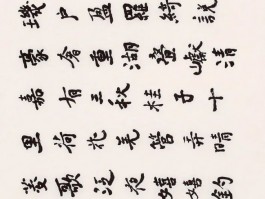 璣户盈羅綺競
豪奢重湖疊巘清
嘉有三秋桂子十
里荷花羌管弄晴
菱歌泛夜嬉嬉釣